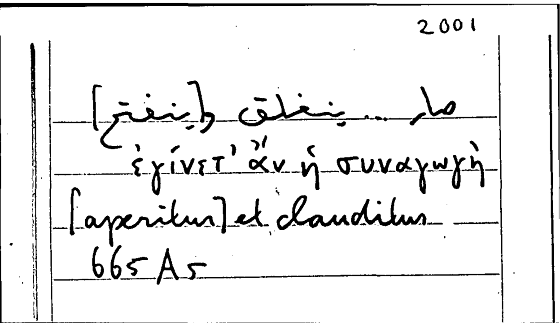 2001
صار ... ينغلق و[ينفتح]
ἐγίνετ' ἂν ἡ συναγωγὴ
[aperitur] et clauditur
665 A5